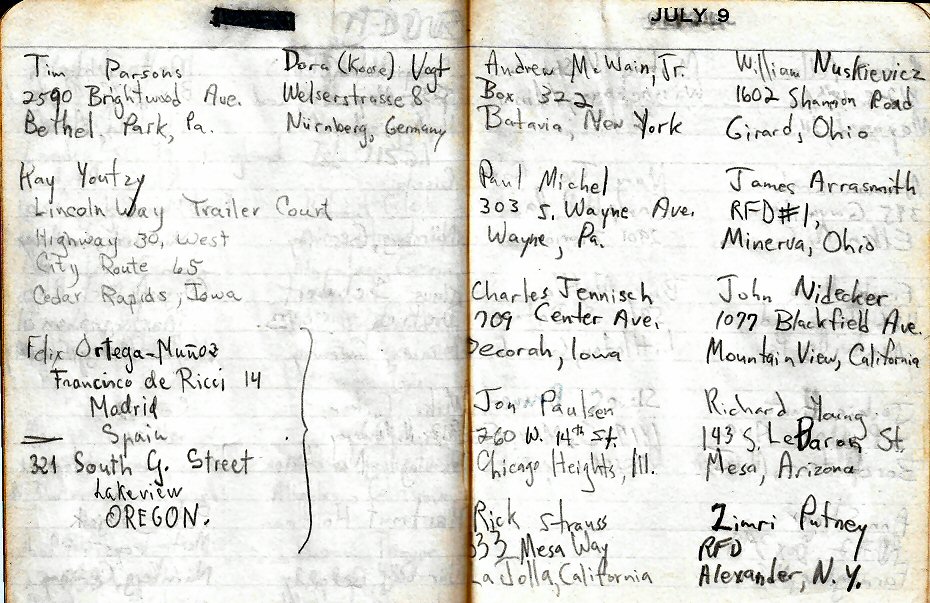 Tim Parsons
2590 Brightwood Ave.
Bethel Park, Pa.
Dora (Koose) Vogt
Welserstrasse 8
Nürnberg, Germany
Kay Youtzy
Lincoln Way Trailer Court
Highway 30, West
City Route 65
Cedar Rapids, Iowa
Felix Ortega-Muñoz
Francisco de Ricci 14
Madrid
Spain
321 South G. Street
Lakeview
OREGON.
JULY 9
Andrew McWain, Jr.
Box 322
Batavia, New York
William Nuskievicz
1602 Shannon Road
Girard, Ohio
Paul Michel
303 S. Wayne Ave.
Wayne, Pa.
James Arrasmith
RFD #1,
Minerva, Ohio
Charles Jennisch
709 Center Ave.
Decorah, Iowa
John Nidecker
1077 Blackfield Ave.
Mountain View, California
Jon Paulsen
260 W. 14th St.
Chicago Heights, Ill.
Richard Young
143 S. LeBaron St.
Mesa, Arizona
Rick Strauss
333 Mesa Way
La Jolla, California
Zimri Putney
RFD
Alexander, N.Y.